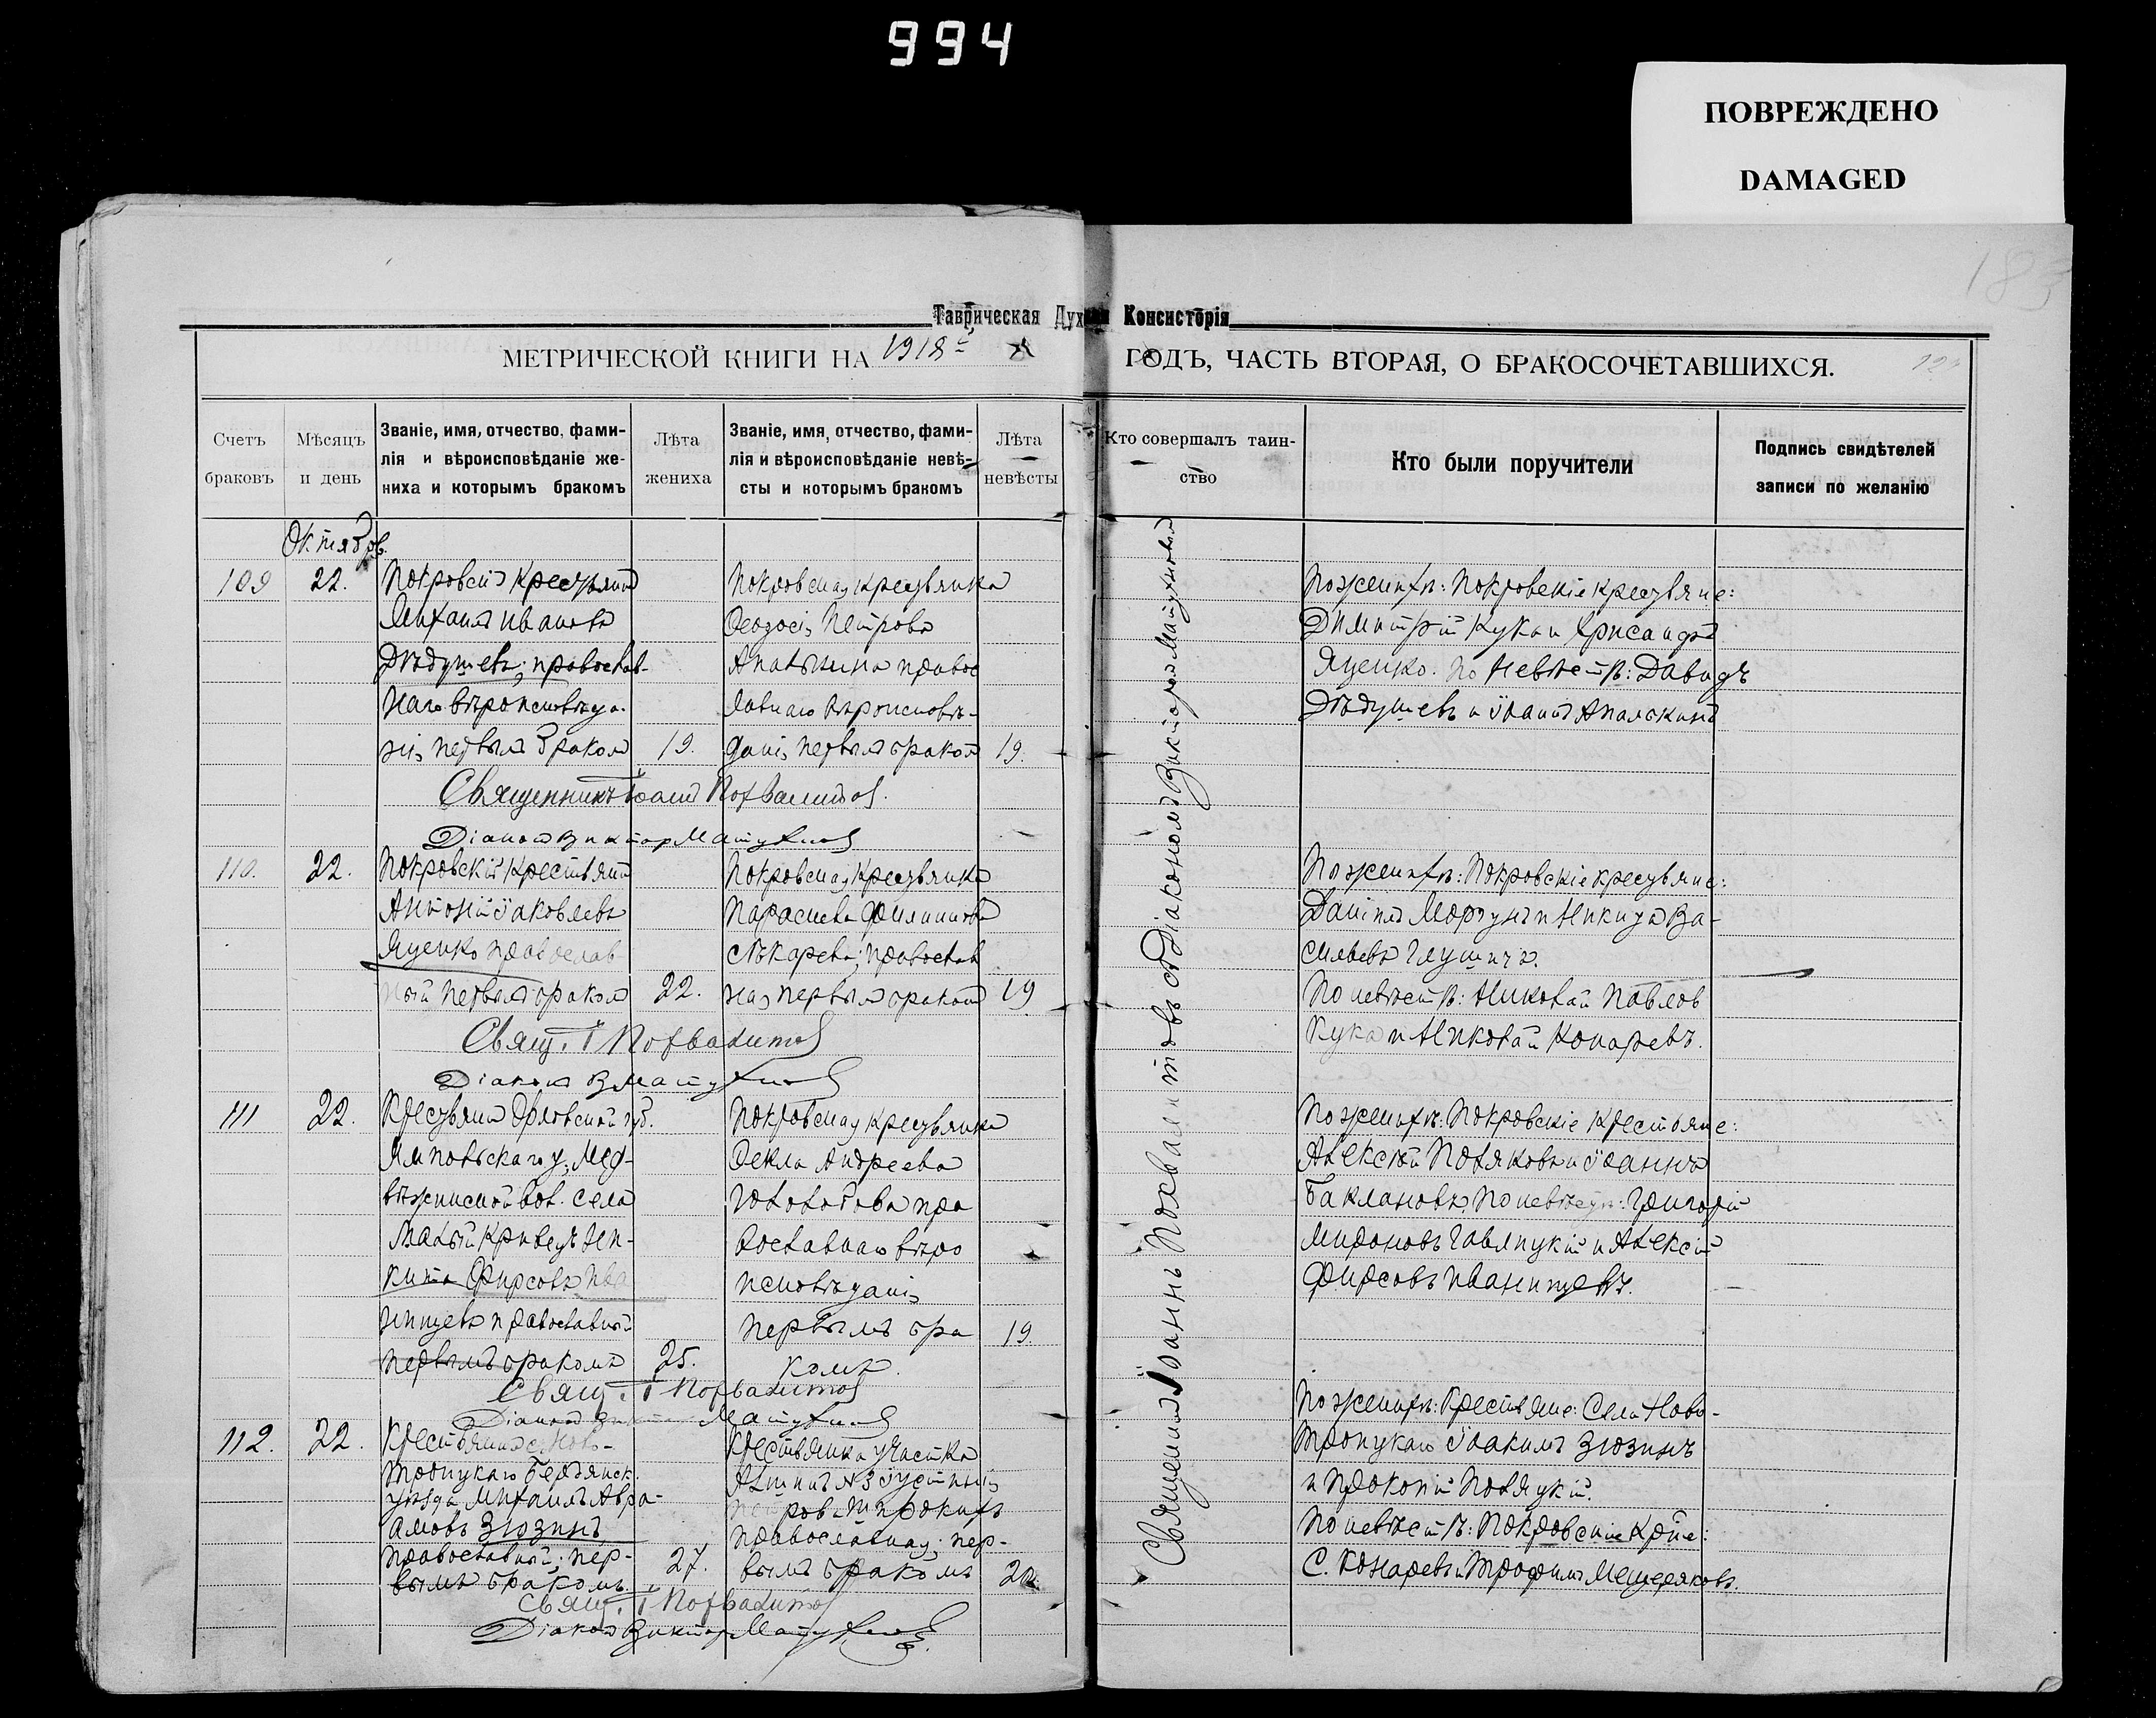 994
ПОВРЕЖДЕНО
DAMAGED
183
Таврическая Духовная Консисторія
МЕТРИЧЕСКОЙ КНИГИ НА 1918 ГОДЪ, ЧАСТЬ ВТОРАЯ, О БРАКОСОЧЕТАВШИХСЯ.
Счетъ браковъ
Мѣсяцъ и день
Званіе, имя, отчество, фами-
лія и вѣроисповѣданіе же-
ниха и которымъ бракомъ
Лѣта
жениха
Званіе, имя, отчество, фами-
лія и вѣроисповѣданіе невѣ-
сты и которымъ бракомъ
Лѣта
невѣсты
Кто совершалъ таин-
ство
Кто были поручители
Подпись свидѣтелей
записи по желанію
Октябрь
109
22.
Покровскій Крестьянинъ
Михаилъ Ивановъ
Дѣдушевъ, православ-
наго вѣроисповѣда-
нія первымъ бракомъ
19.
Покровская крестьянка
Ѳеодосія Петрова
Апалькина правос
лавнаго вѣроисповѣ-
данія первымъ бракомъ
19.
По женихѣ: Покровскіе крестьяне:
Димитрій Кука и Хрисанфъ
Яценко. По невѣстѣ: Давидъ
Дѣдушевъ и Іоаннъ Апалькинъ
Священникъ Іоаннъ Похвалитовъ.
Діаконъ Викторъ Матухновъ
110.
22.
Покровскій Крестьянинъ
Антоній Іаковлевъ
Яценко православ
ный первымъ бракомъ
22.
Покровская Крестьянка
Параскева Филиппова
Лѣкарева, православ
ная первымъ бракомъ
19
По женихѣ: Покровскіе крестьяне:
Даніилъ Моргунъ и Никита Ва-
сильевъ
По невѣстѣ: Николай Павлов
Кука и Николай Конаревъ.
Свящ. І Похвалитовъ
Діаконъ В Матухновъ
111
22.
Крестьянинъ Орловской губ.
Ямпольскаго у, Мед-
вѣжинской вол. села
Малый Кривецъ Ни-
кита Фирсовъ Ива
нищевъ православный
первымъ бракомъ
25.
Покровская крестьянка
Ѳекла Андреева
Гололобова пра
вославнаго вѣро
исповѣданія
первымъ бра
комъ.
19.
По женихѣ: Покровскіе крестьяне:
Алексѣй Поляковъ и Іоаннъ
Баклановъ. По невѣстѣ: Григорій
Мироновъ Гавлицкій и Алексій
Фирсовъ Иванищевъ.
Свящ. І Похвалитовъ
Діаконъ Викторъ Матухновъ
112.
22.
Крестьянинъ с Ново-
троицкаго Бердянск.
уѣзда Михаилъ Авра-
амовъ Зюзинъ
православный, пер-
вымъ бракомъ.
27.
Крестьянка участка
№3
православная, пер-
вымъ бракомъ
20.
По женихѣ: Крестьяне: Села Ново-
троицкаго Іоакимъ Зюзинъ
и Прокопій Поляцкій.
По невѣстѣ: Покровскіе Кр-не:
С. Конаревъ и Трофимъ Мещеряковъ.
Свящ. І Похвалитовъ
Діаконъ Викторъ Матухновъ
Священникъ Іоаннъ Похвалитовъ съ Діакономъ Викторомъ Матухновымъ